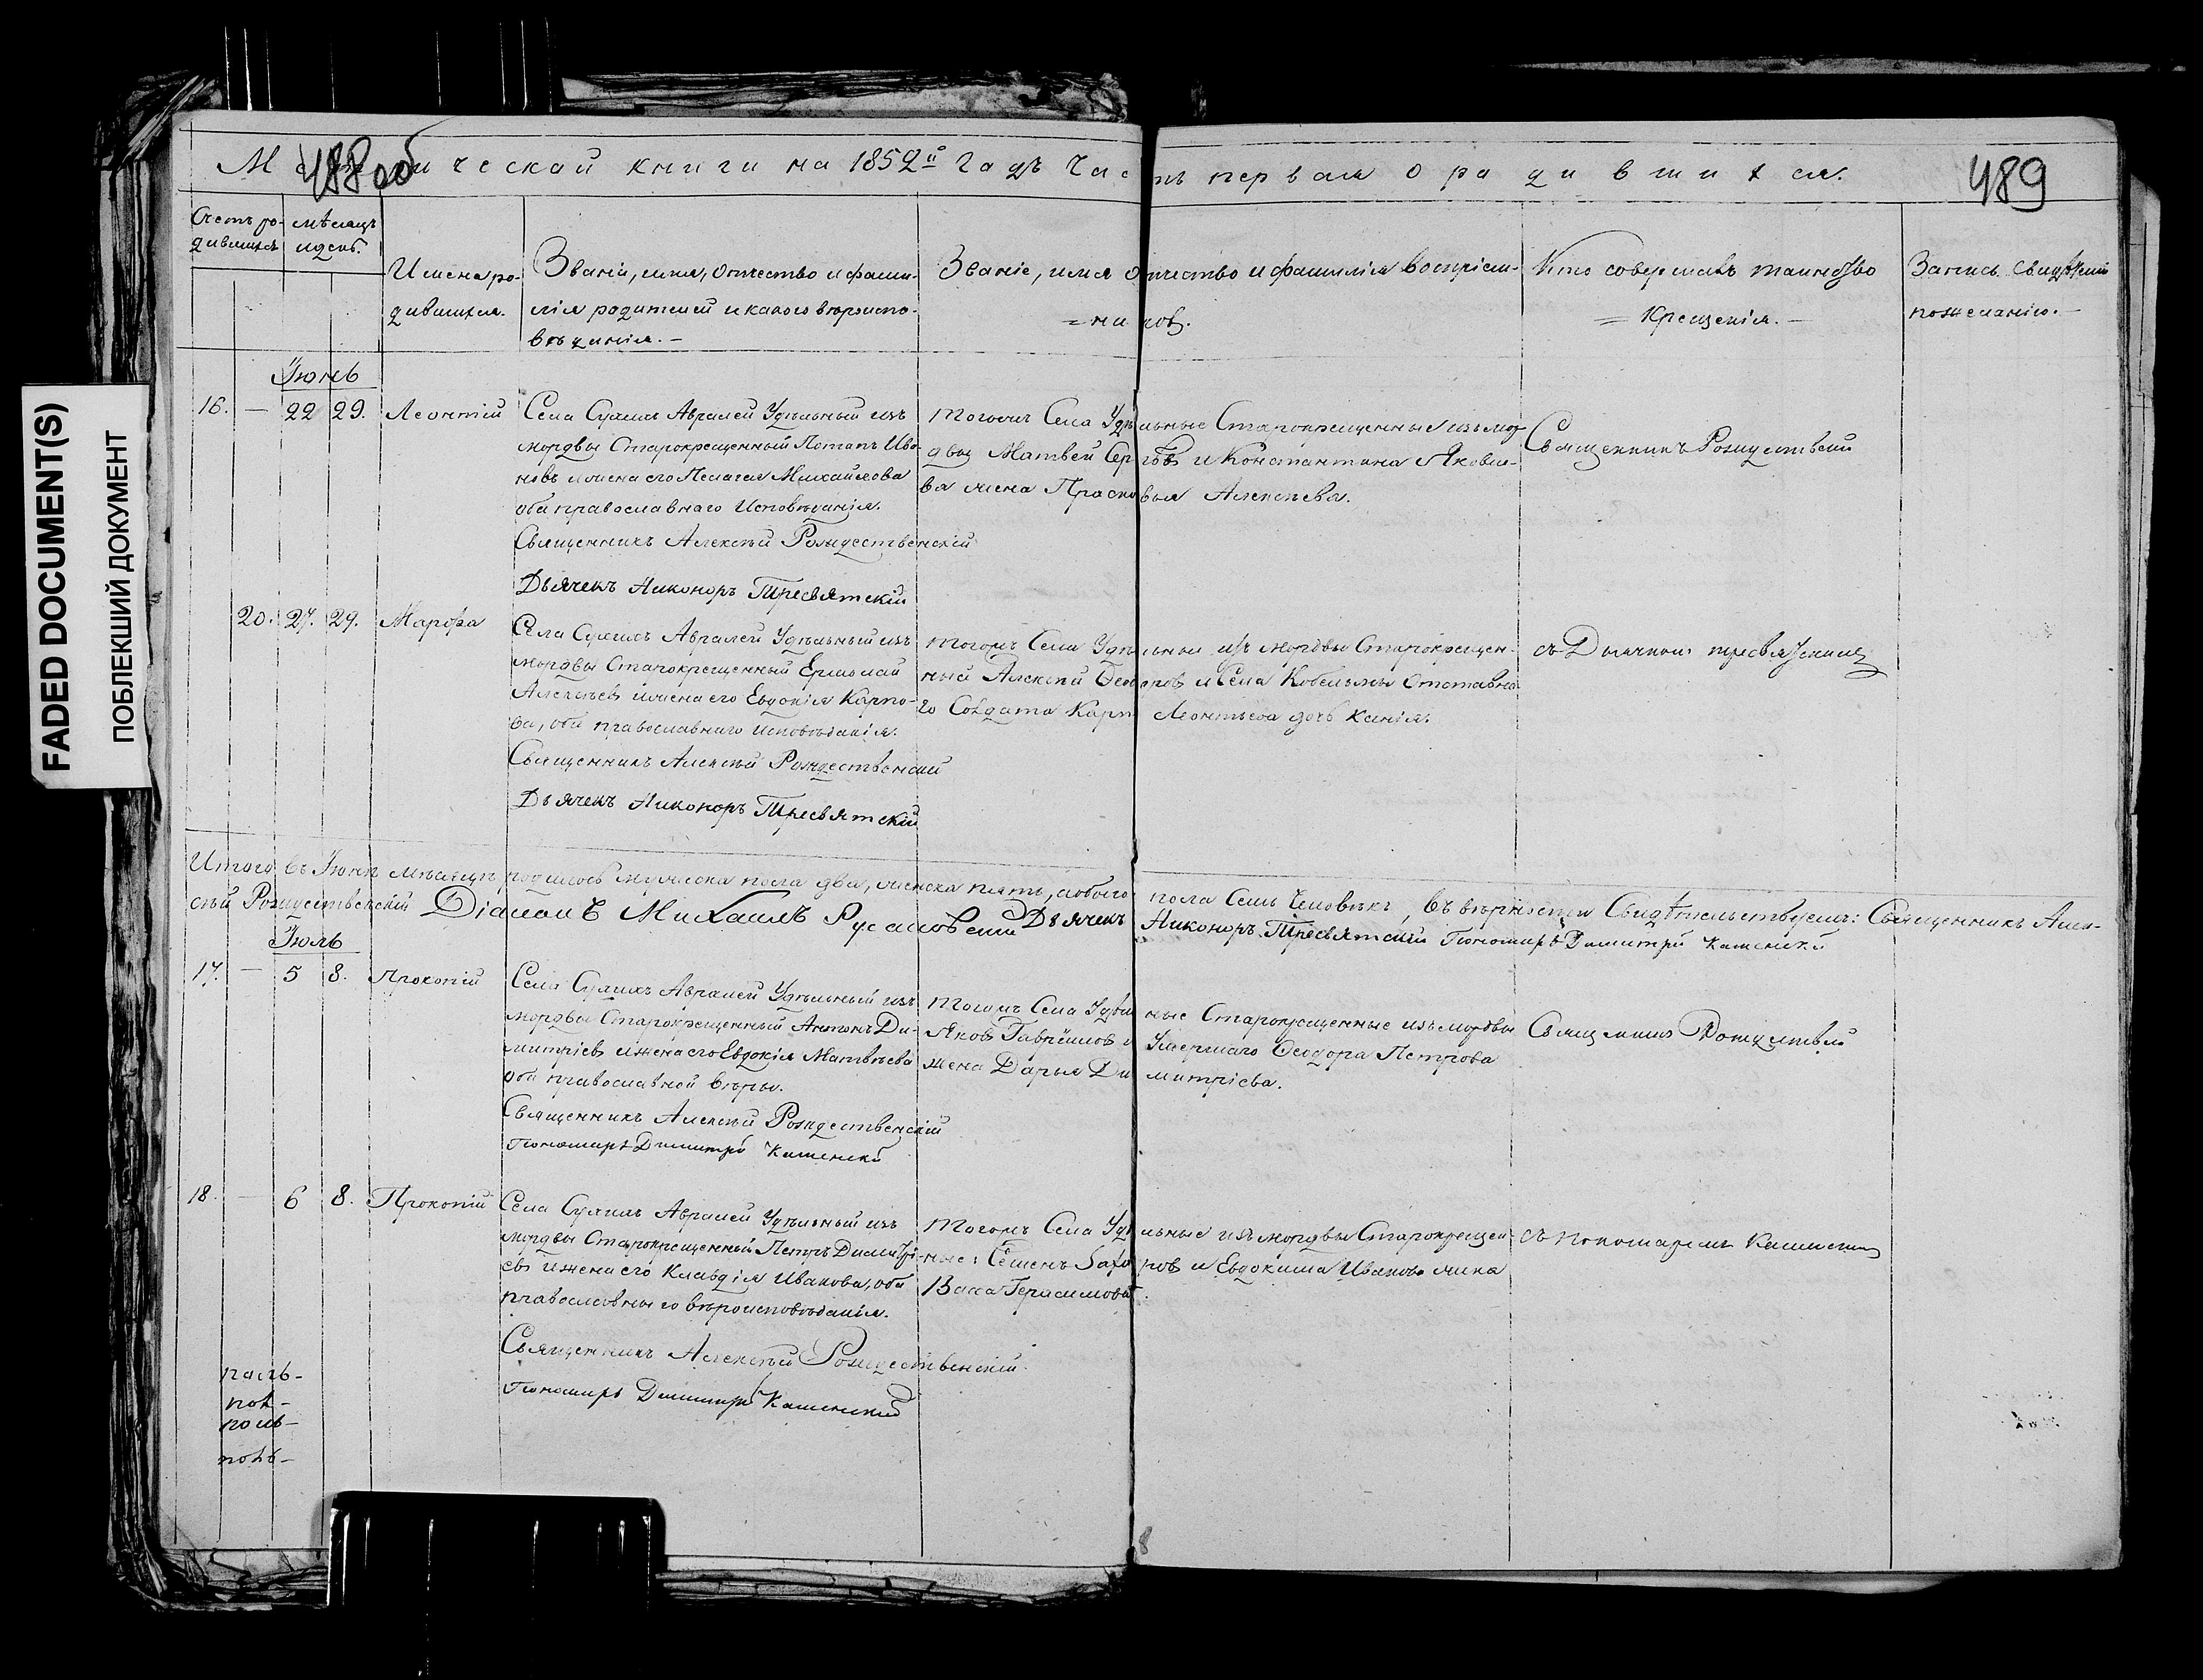 FADED DOCUMENT(S)
ПОБЛЕКШИЙ ДОКУМЕНТ
488 об
489
ческой книги на 1852й Годъ Часть первая о родившихся.
Счетъ ро-
дившихся
мѣсяцъ
и день.
Имена ро-
дившихся.
Званіе, имя, отчество и фами-
лія родителей и какого вѣроиспо-
вѣданія. —
Званіе, имя отчество и фамилія воспріем-
= ников.
Кто совершалъ таинство
= Крещенія. —
Запись свидѣтелей
по желанію. —
Іюнь
16. — 22 29. Леонтій
Села Сухихъ Авралей Удѣльный изъ
мордвы Старокрещенный Потапъ Ива-
новъ и жена его Пелагея Михайлова
оба православнаго Исповѣданія.
Священникъ Алексѣй Рождественскій
Дьячекъ Никоноръ Тресвятскій
Тогожъ Села Удѣльные Старокрещенные изъ мор-
двы Матвей Сер и Константина Яковле-
ва жена Прасковья Алексѣева.
Священникъ Рождественскій
20. 27. 29. Марфа
Села Сухихъ Авралей Удѣльный изъ
мордвы Старокрещенный Ермолай
Алексѣевъ и жена его Евдокія Карпо-
ва, оба православнаго исповѣданія.
Священникъ Алексѣй Рождественскій
Дьячекъ Никоноръ Тресвятскій
Тогожъ Села Удѣльной изъ мордвы Старокрещен-
ный Алексѣй и Села Кобельмы Отставна-
го Солдата Карпа Леонтьева дочь Ксенія.
съ Дьячкомъ Тресвятскимъ
Итого въ Іюнѣ мѣсяцѣ родилось мужеска пола два, женска пять, а обоего пола Семь Человѣкъ, въ вѣрности Свидѣтельствуемъ: Священникъ Алек-
сѣй Рождественскій Діаконъ Михаилъ Русановскій Дьячекъ Никоноръ Тресвятскій Пономарь Димитрій Каменскій
Іюль
17. — 5 8. Прокопій
Села Сухихъ Авралей Удѣльный изъ
мордвы Старокрещенный Антонъ Ди-
митріевъ и жена его Евдокія Матвѣева
оба православной вѣры.
Священникъ Алексѣй Рождественскій
Пономарь Димитрій Каменскій
Тогожъ Села Удѣльные Старокрещенные изъ мордвы
Яковъ Гавриловъ и Умершаго Ѳеодора Петрова
жена Дарья Димитріева.
Священникъ Рождественскій
18. — 6 8. Прокопій
Села Сухихъ Авралей Удѣльный изъ
мордвы Старокрещенный Петръ Димитрі-
евъ и жена его Клавдія Иванова, оба
православнаго вѣроисповѣданія.
Священникъ Алексѣй Рождественскій
Пономарь Димитрій Каменскій
Тогожъ Села Удѣльные изъ мордвы Старокрещен-
ные: Семенъ Захаровъ и Евдокима Иванова жена
Васса Герасимова.
съ пономаремъ Каменскимъ